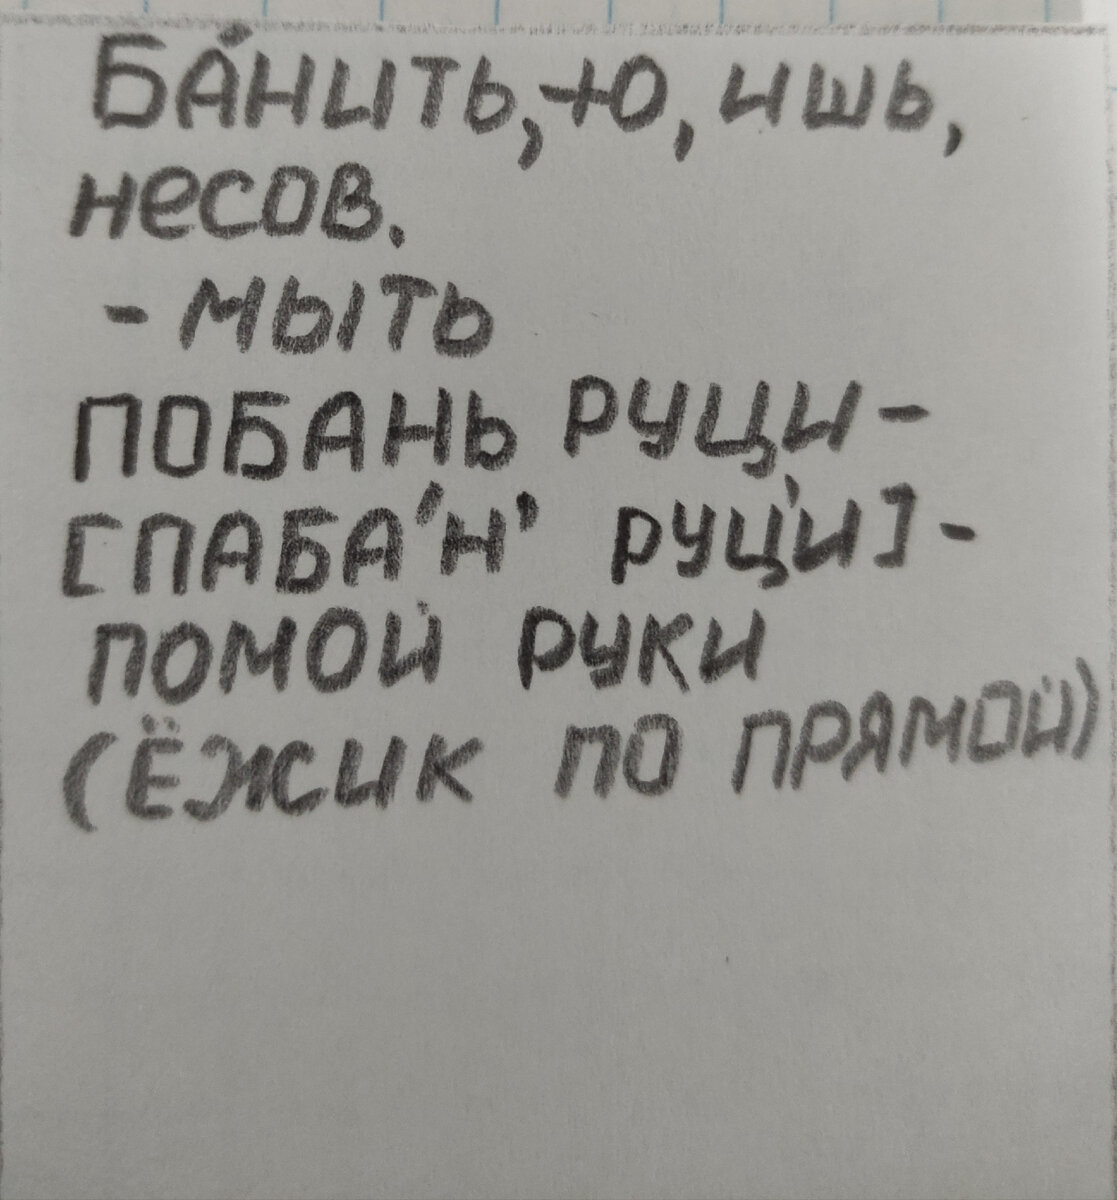 БА́НИТЬ,-Ю, ИШЬ,
несов.
- МЫТЬ
ПОБАНЬ РУЦИ-
[ПАБА'Н' РУЦ'И]-
ПОМОЙ РУКИ
(ЁЖИК ПО ПРЯМОЙ)